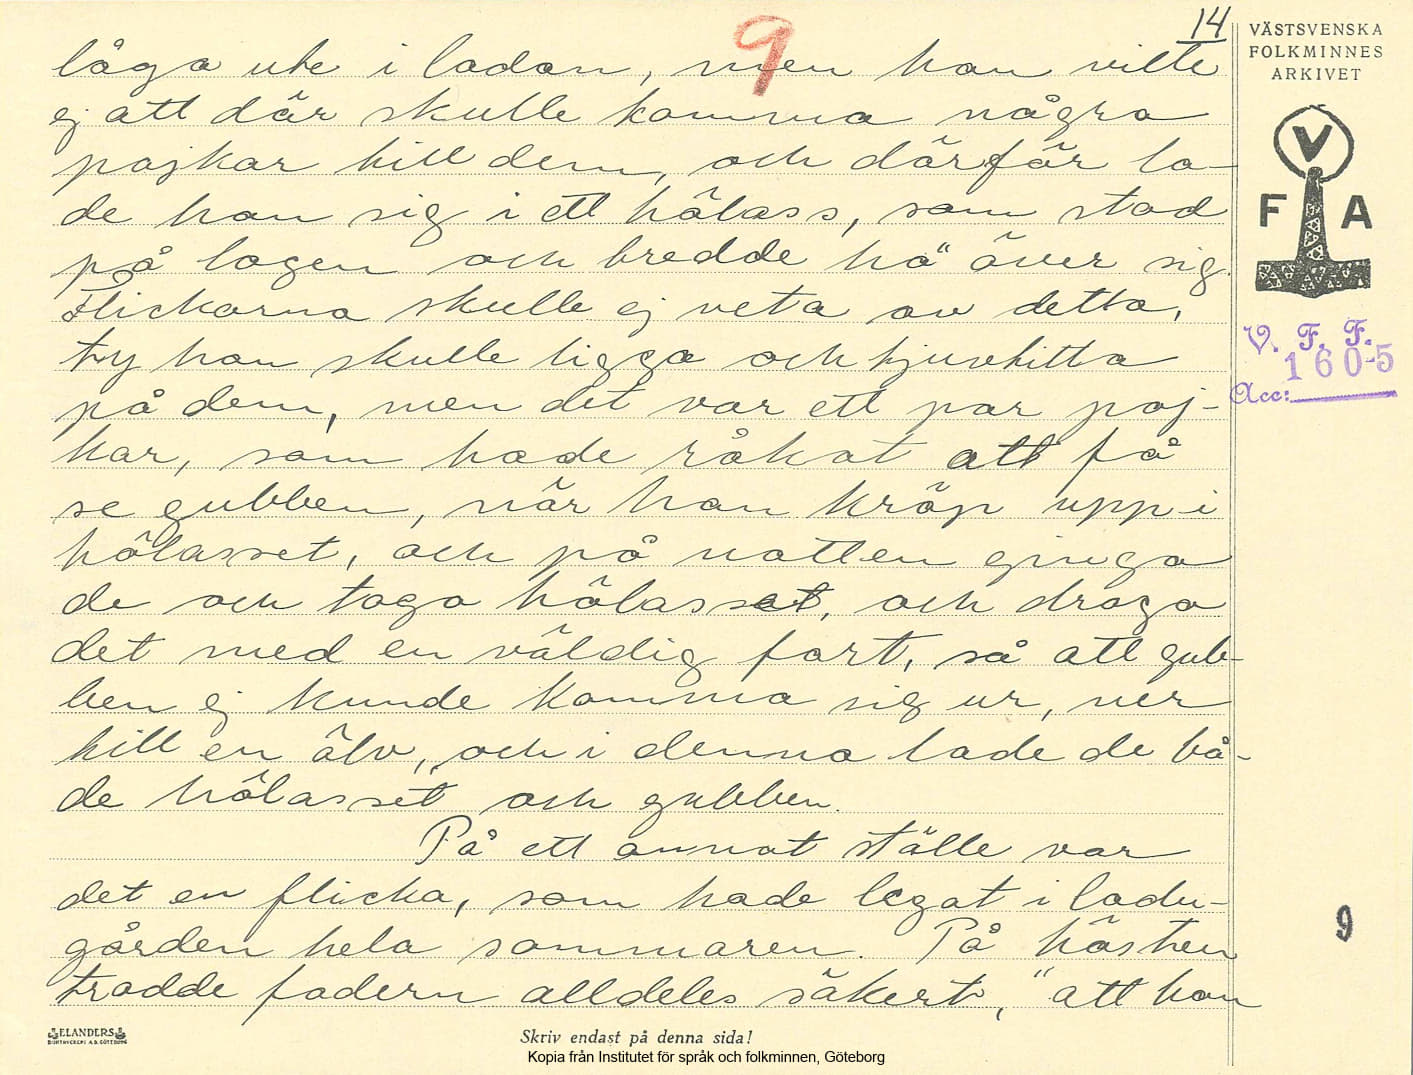 14
9
VÄSTSVENSKA
FOLKMINNES
ARKIVET
V
F A
V. F. F.
1605
Acc:
låga ute i ladan, men han ville
ej att där skulle komma några
pojkar till dem, och därför la-
de han sig i ett hölass, som stod
på logen och bredde hö över sig.
Flickorna skulle ej veta av detta,
ty han skulle ligga och tjuvtitta
på dem, men det var ett par poj-
kar, som hade råkat att få
se gubben, när han kröp upp i
hölasset, och på natten gingo
de och togo hölasset, och drogo
det med en väldig fart, så att gub-
ben ej kunde komma sig ur, ner
till en älv, och i denna lade de bå-
de hölasset och gubben.
På ett annat ställe var
det en flicka, som hade legat i ladu-
gården hela sommaren. På hösten
trodde fadern alldeles säkert, "att hon
9
ELANDERS
BOKTRYCKERI A.B. GÖTEBORG
Skriv endast på denna sida!
Kopia från Institutet för språk och folkminnen, Göteborg